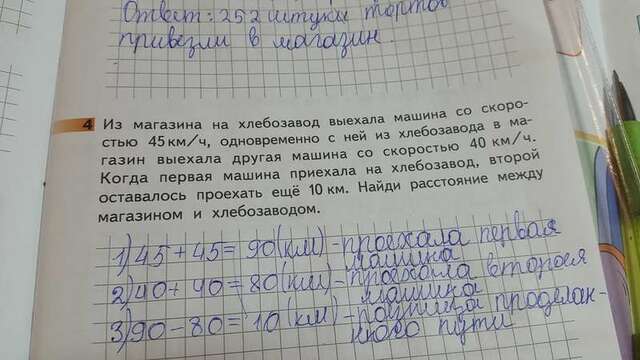 Ответ: 252 штуки тортов
привезли в магазин.
4 Из магазина на хлебозавод выехала машина со скоро-
стью 45 км/ч, одновременно с ней из хлебозавода в ма-
газин выехала другая машина со скоростью 40 км/ч.
Когда первая машина приехала на хлебозавод, второй
оставалось проехать ещё 10 км. Найди расстояние между
магазином и хлебозаводом.
1) 45 + 45 = 90 (км) - проехала первая
машина
2) 40 + 40 = 80 (км) - проехала вторая
машина
3) 90 - 80 = 10 (км) -
ного пути